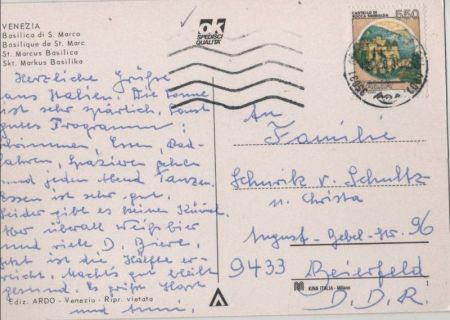 VENEZIA
Basilica di S. Marco
Basilique de St. Marc
St. Marcus Basilica
Skt. Markus Basilika
ok
SPEDISCI
QUALITÀ
CASTELLO DI
ROCCA SINIBALDA
550
Herzliche Grüße
aus Italien. Die Sonne
ist sehr spärlich, sonst
gutes Programm:
Essen, Rad-
fahren, Spazieren gehen
und jeden Abend Tanzen.
Essen ist sehr gut.
Leider gibt es keinen
Aber überall Weißbier
und viele D. Biere.
ist die Hälfte er-
reicht. Nachts gut bleibt
gesund. Es grüßt Horst
und
An
Familie
Schurik v. Schultz
u. Christa
August-Bebel-Str. 96
9433 Beierfeld
D.D.R.
Ediz. ARDO - Venezia - Ripr. vietata
KINA ITALIA - Milano
1